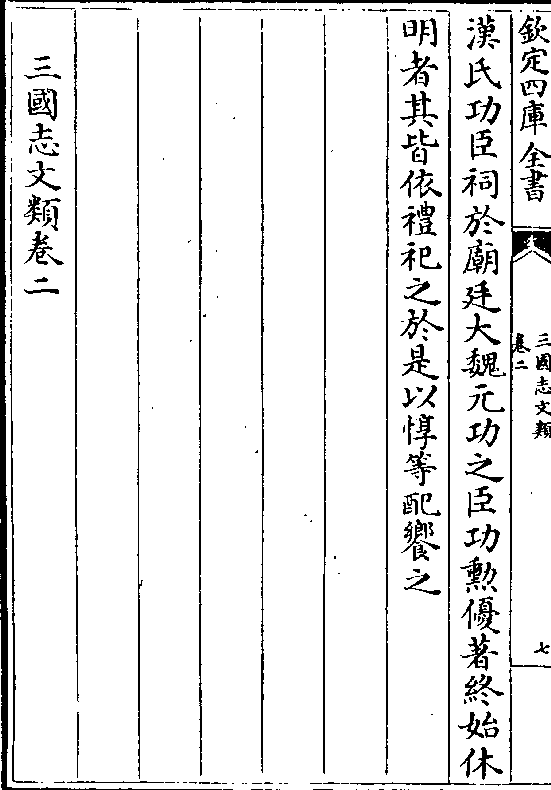 欽定四庫全書
三國志文類
卷二
七
漢氏功臣祠於廟廷大魏元功之臣功勲優著終始休
明者其皆依禮祀之於是以惇等配饗之
三國志文類卷二